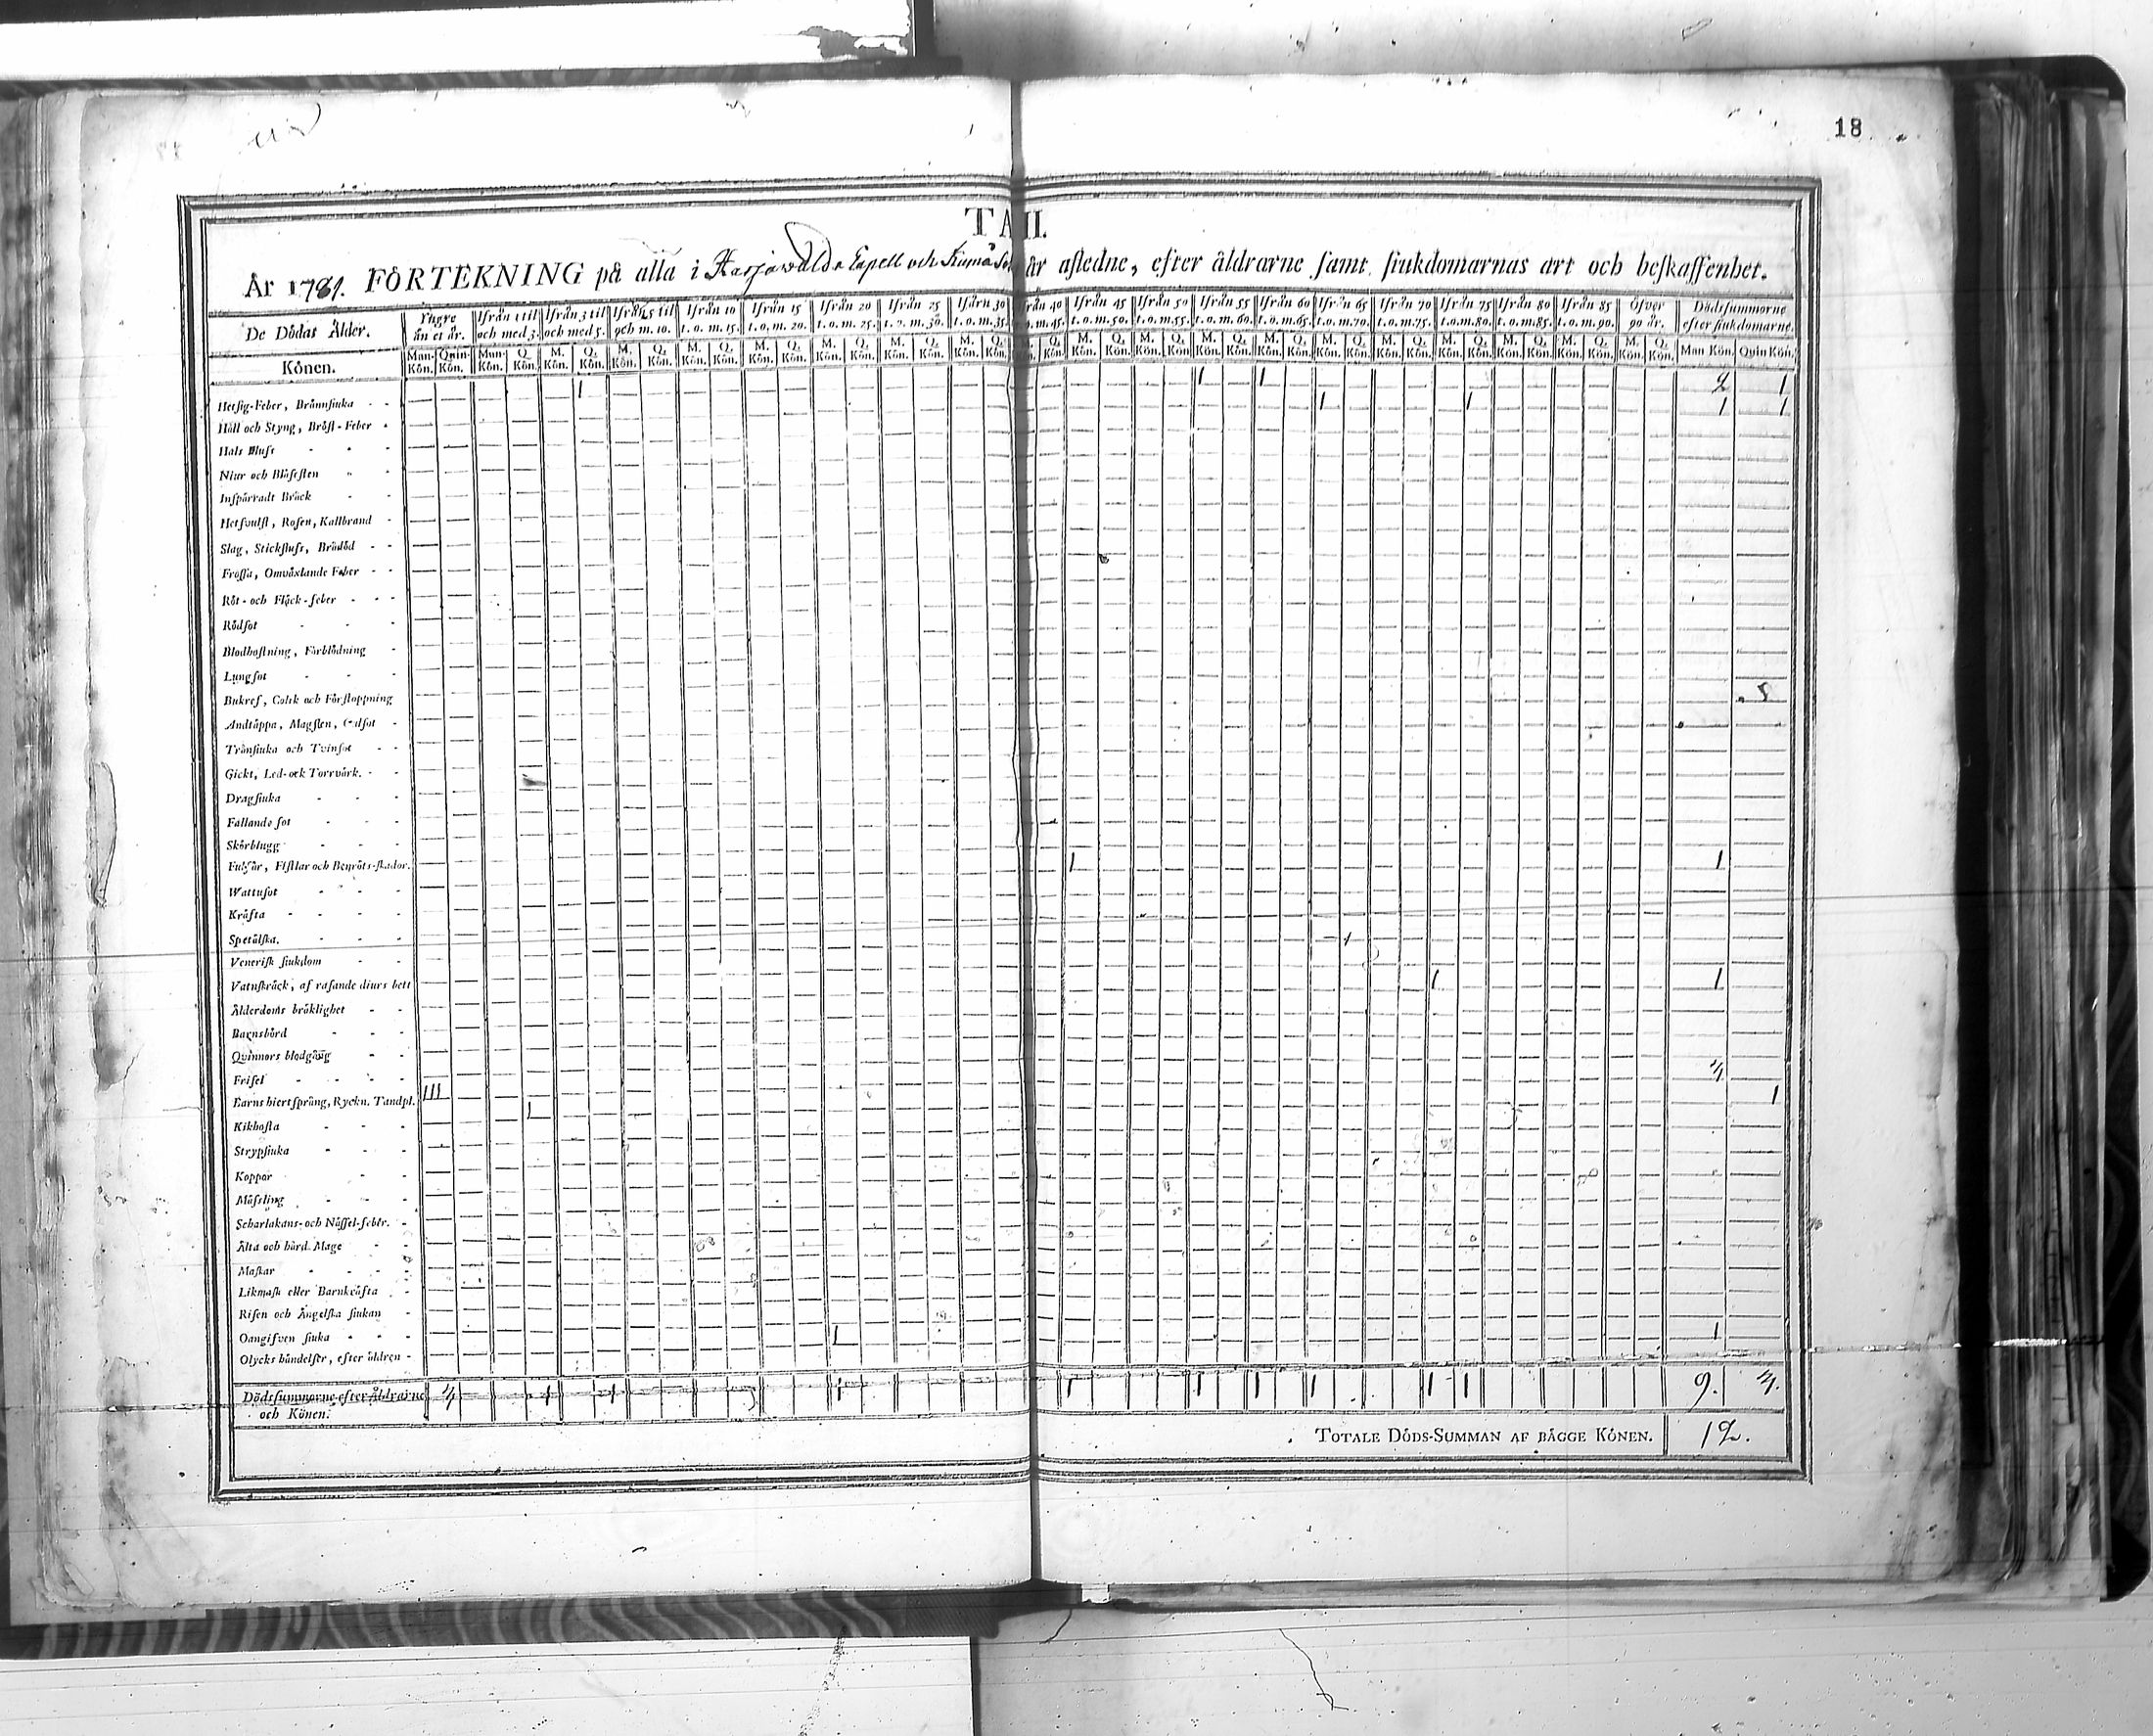 18
TA II.
År 1781. FÖRTEKNING på alla i Karjawalda Capell och Kumå Sokn år afledne, efter åldrarne samt siukdomarnas art och beskaffenhet.
De Dödas Ålder. Yngre än et år. Ifrån 1 til och med 3. Ifrån 3 til och med 5. Ifrån 5 til och m. 10. Ifrån 10 t. o. m. 15. Ifrån 15 t. o. m. 20. Ifrån 20 t. o. m. 25. Ifrån 25 t. o. m. 30. Ifårn 30 t. o. m. 35. rån 40 t. o. m. 45. Ifrån 45 t. o. m. 50. Ifrån 50 t. o. m. 55. Ifrån 55 t. o. m. 60. Ifrån 60 t. o. m. 65. Ifrån 65 t. o. m. 70. Ifrån 70 t. o. m. 75. Ifrån 75 t. o. m. 80. Ifrån 80 t. o. m. 85. Ifrån 85 t. o. m. 90. Öfver 90 år. Dödssummorne efter siukdomarne.
Könen. Man-Kön. Quin-Kön. Man-Kön. Q. Kön. M. Kön. Q. Kön. M. Kön. Q. Kön. M. Kön. Q. Kön. M. Kön. Q. Kön. M. Kön. Q. Kön. M. Kön. Q. Kön. M. Kön. Q. Kön. Q. Kön. M. Kön. Q. Kön. M. Kön. Q. Kön. M. Kön. Q. Kön. M. Kön. Q. Kön. M. Kön. Q. Kön. M. Kön. Q. Kön. M. Kön. Q. Kön. M. Kön. Q. Kön. M. Kön. Q. Kön. M. Kön. Q. Kön. Man Kön. Quin Kön.
Hetsig-Feber, Brännsiuka 1 1 1 2 1
Håll och Styng, Bröst-Feber 1 1 1 1
Hals Fluss
Niur och Blåsesten
Inspärradt Bråck
Hetsvulst, Rosen, Kallbrand
Slag, Stickfluss, Brådöd
Frossa, Omväxlande Feber
Röt- och Fläck-feber
Rödsot
Blodhostning, Förblödning
Lungsot
Bukref, Colik och Förstoppning
Andtäppa, Magsten, Gulsot
Trånsiuka och Tvinsot
Gickt, Led-ock Torrvärk.
Dragsiuka
Fallande sot
Skörbiugg
Fulsår, Fistlar och Benröts-skador. 1 1
Wattusot
Kräfta
Spetälska.
Venerisk siukdom 1
Vatnskräck, af rasande diurs bett 1 1
Ålderdoms bräklighet
Barnsbörd
Qvinnors blodgång
Frisel
Barns hiertsprång, Ryckn. Tandpl. 111 1
Kikhosta 1
Strypsiuka
Koppor
Mässling
Scharlakans-och Nässel-feber.
Älta och hård Mage
Maskar
Likmask eller Barnkräfta
Risen och Ängelska siukan
Oangifven siuka 1 1
Olycks händelser, efter åldren
Dödssummorne efter åldrarne och Könen. 1 1 1 1 1 1 1 1 1 9.
TOTALE DÖDS-SUMMAN AF BÄGGE KÖNEN. 12.